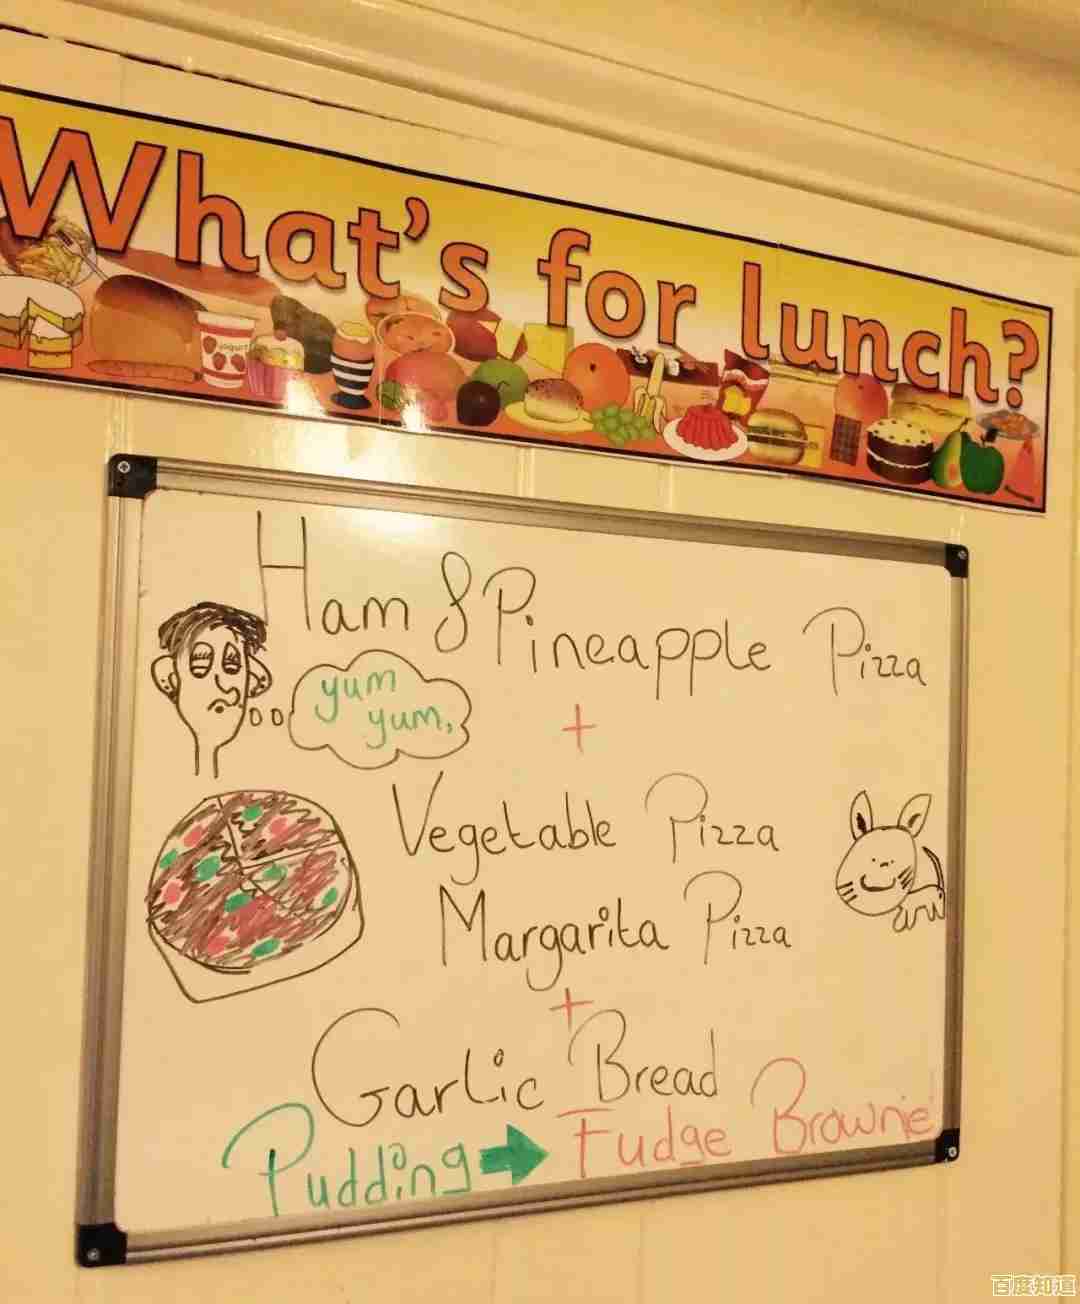 What's for lunch?
yogurt
Ham & Pineapple Pizza
yum
yum,
+
Vegetable Pizza
Margarita Pizza
+
Garlic Bread
Pudding → Fudge Brownie!
百度知道